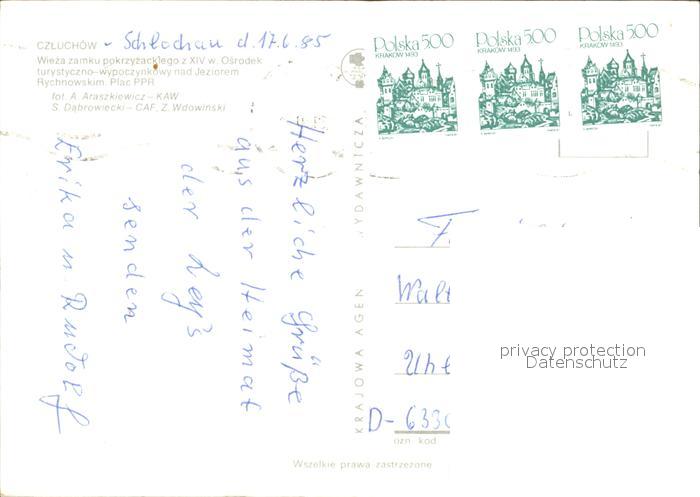 CZŁUCHÓW - Schlochau d. 17.6.85
Wieża zamku pokrzyżackiego z XIV w. Ośrodek
turystyczno-wypoczynkowy nad Jeziorem
Rychnowskim. Plac PPR
fot. A. Araszkiewicz – KAW
S. Dąbrowiecki – CAF, Z. Wdowiński
Herzliche Grüße
aus der Heimat
der
senden
Erika u Rudolf
KRAJOWA AGEN WYDAWNICZA
Polska 5,00
KRAKÓW 1493
Polska 5,00
KRAKÓW 1493
Polska 5,00
KRAKÓW 1493
F.
Walt
Uhl
D-6330
ozn. kod
Wszelkie prawa zastrzeżone
privacy protection
Datenschutz